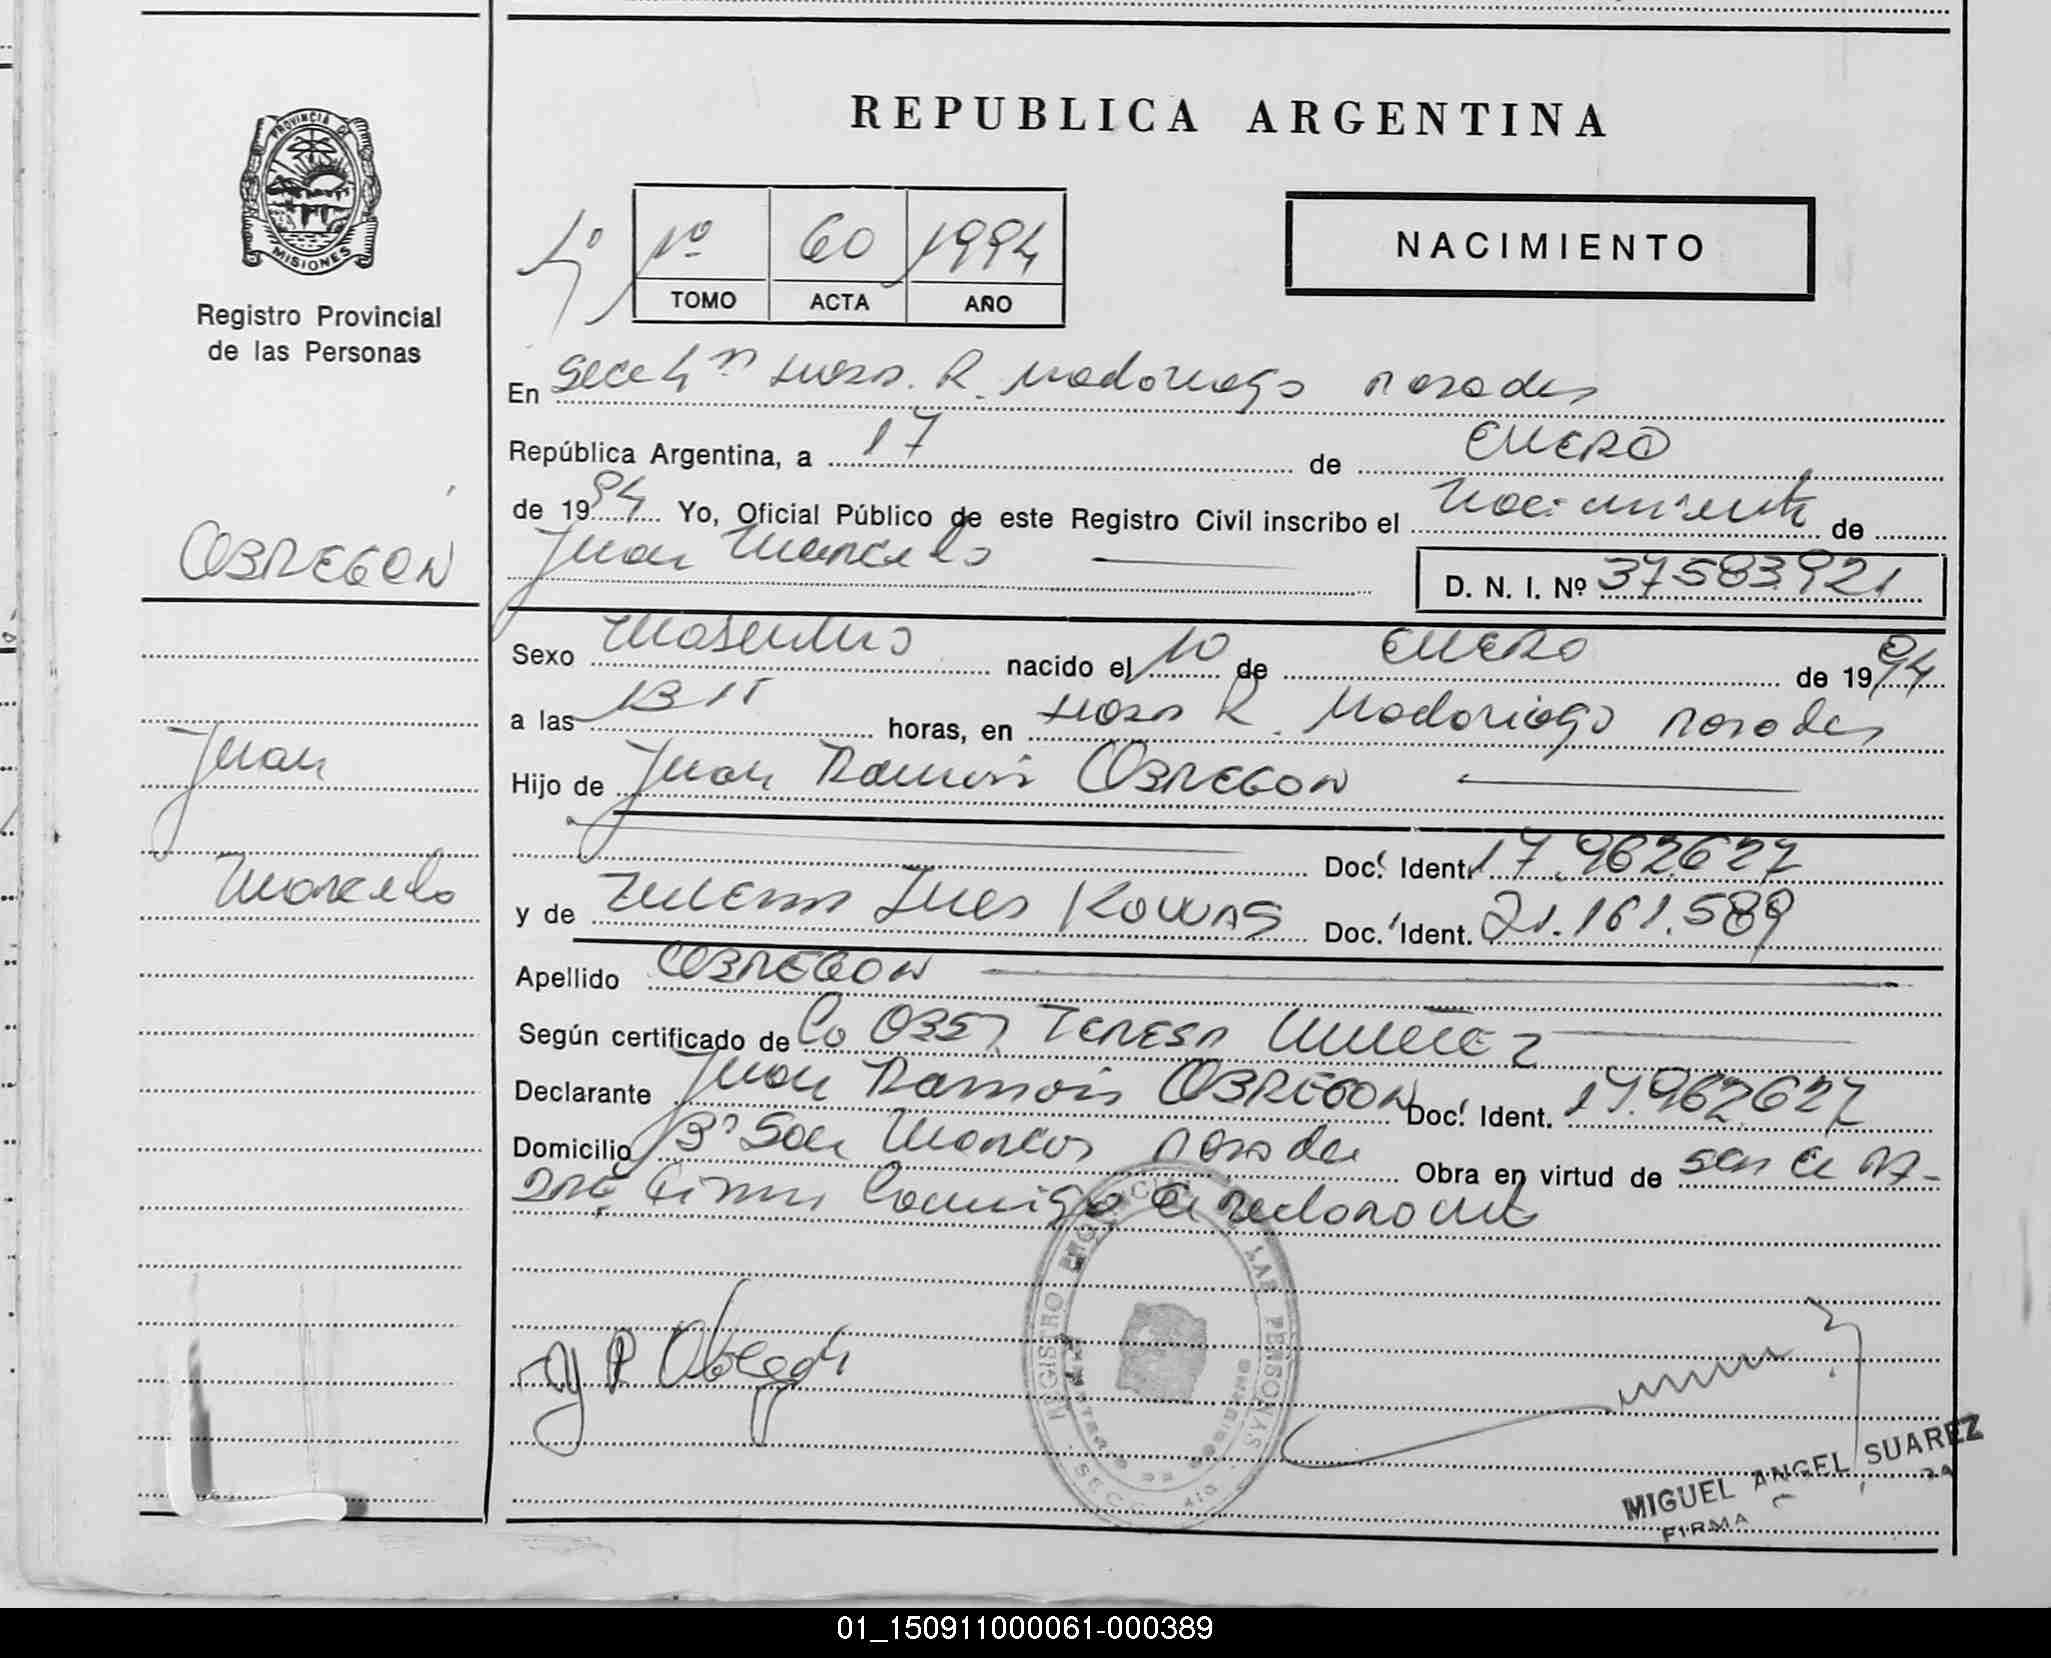 REPUBLICA ARGENTINA
PROVINCIA DE
MISIONES
Registro Provincial
de las Personas
1º 60 1994
TOMO ACTA AÑO
NACIMIENTO
En Secc Hosp. R. Madariaga Posadas
República Argentina, a 17 de ENERO
de 1994 Yo, Oficial Público de este Registro Civil inscribo el Nacimiento de
Juan Marcelo
D. N. I. Nº 37583921
OBREGON
Juan
Marcelo
Sexo Masculino nacido el 10 de ENERO de 1994
a las 13 15 horas, en Hosp R. Madariaga Posadas
Hijo de Juan Ramón OBREGON
Doc. Ident. 17.962627
y de Ines Doc. Ident. 21.161.589
Apellido OBREGON
Según certificado de TERESA
Declarante Juan Ramón OBREGON Doc. Ident. 17.962627
Domicilio Bº San Marcos Posadas Obra en virtud de ser el PA-
DRE Firma Conmigo el declarante
REGISTRO PROVINCIAL DE LAS PERSONAS
MIGUEL ANGEL SUAREZ
FIRMA
01_150911000061-000389